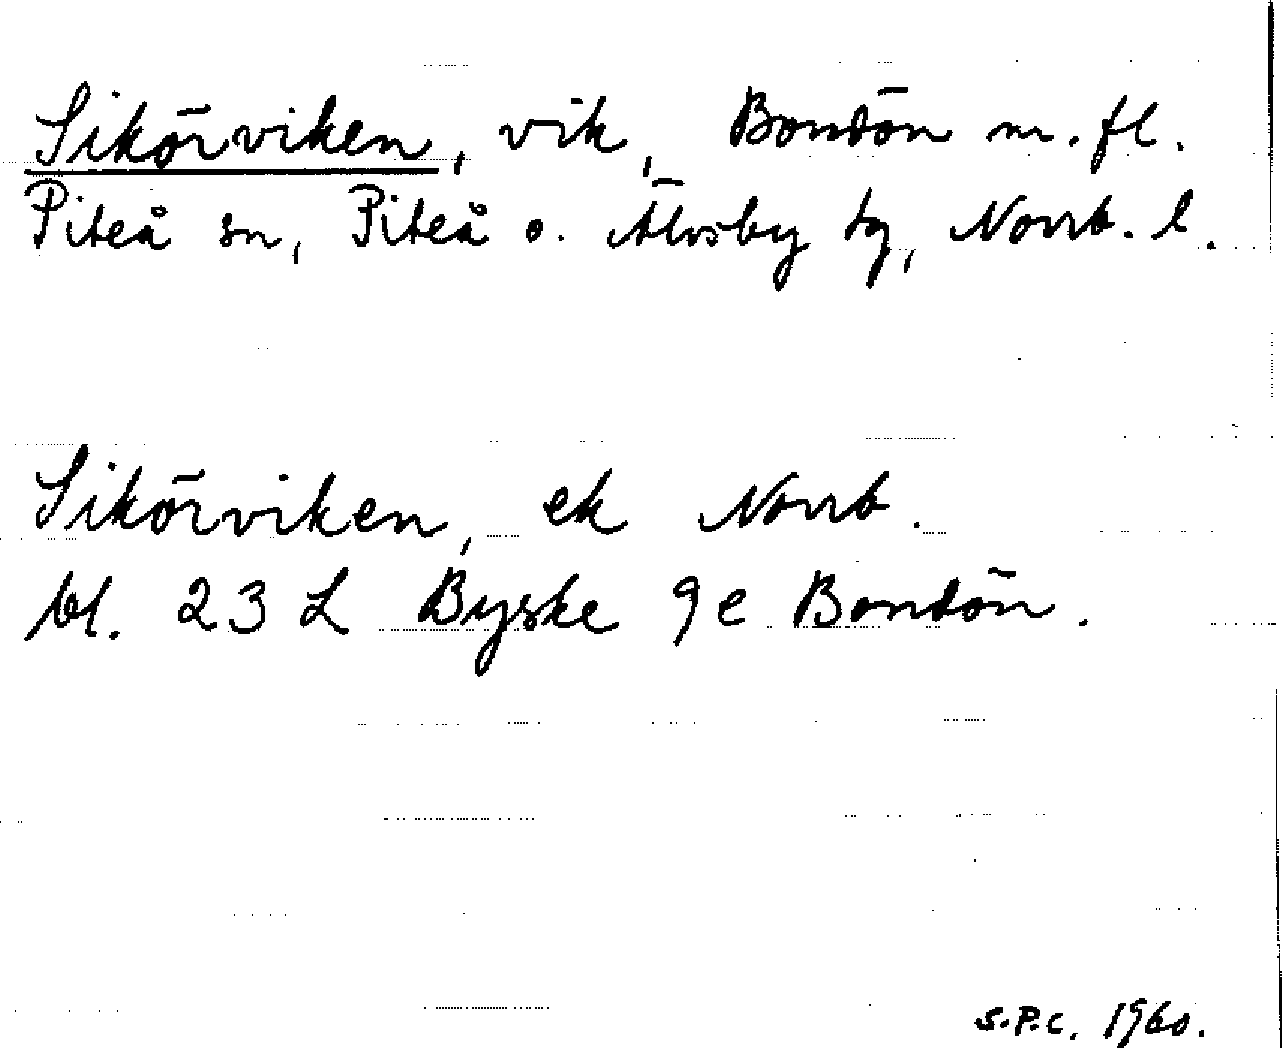 Sikörviken, vik, Bondön m. fl.
Piteå sn, Piteå o. Älvsby tg, Norrb. l.
Sikörviken, ek Norrb.
bl. 23 L Byske 9e Bondön.
S.P.C. 1960.